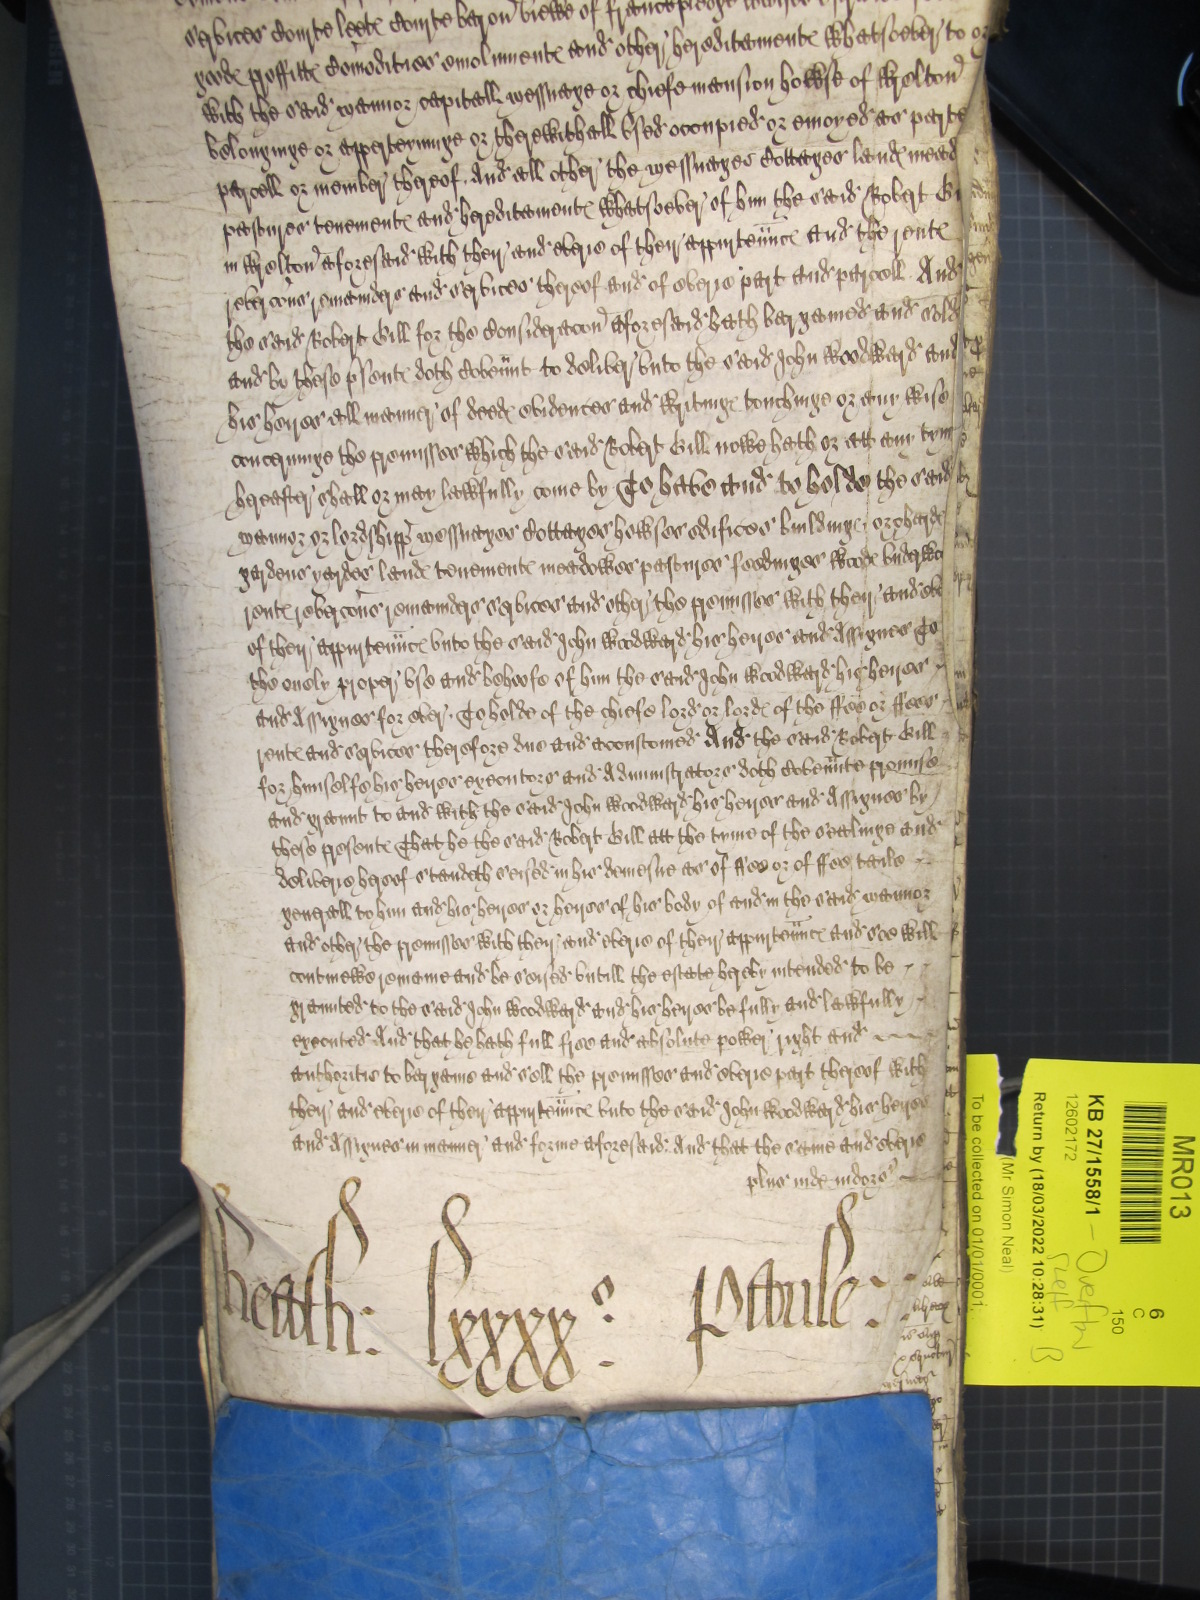 services Courte leete Courte baron viewe of franckpledge
goode proffitte Comodities emolimente and other hereditamente whatsoever to
with the said mannor capitall messuage or chiefe mansion howse of Kelton
belonginge or apperteyninge or therewithall used occupied or enioyed as parte
parcell or member thereof. And all other the messuages Cottages lande mead
pastures tenemente and hereditamente whatsoever of him the said Robert Gi
in Kelton aforesaid with their and everie of their appurtenunce and the rente
revercons remainders and services thereof and of everie part and parcell And
the said Robert Gill for the Consideracon aforesaid hath bargained and solde
and by these psente doth Covennt to deliver unto the said John Woodward and
his heires all manner of deede evidences and writinge touchinge or any wise
concerninge the premisses which the said Robert Gill nowe hath or att any tyme
hereafter shall or may lawfully come by To have and to holde the said
mannor or lordshipp messuages Cottages howses edifices buildinge orcharde
gardens yardes lande tenemente meadowes pastures feedinges woode underwo
rente revercons remainders services and other the premisses with their and eve
of their appurtenunce unto the said John Woodward his heires and Assignes To
the onely proper use and behoofe of him the said John Woodward his heires
and Assignes for ever. To holde of the chiefe lord or lorde of the ffee or ffees
rente and services therefore due and accustomed And the said Robert Gill
for himselfe his heires executors and Administrators doth Covennte promise
and graunt to and with the said John Woodward his heires and Assignes by
these presente That he the said Robert Gill att the tyme of the sealinge and
deliverie hereof standeth seised in his demesne as of ffee or of ffee taile
generall to him and his heires or heires of his body of and in the said mannor
and other the premisses with their and everie of their appurtenunce and soe will
continewe remaine and be seised untill the estate hereby intended to be
graunted to the said John Woodward and his heires be fully and lawfully
executed And that he hath full free and absolute power right and
authoritie to bargaine and sell the premisses and everie part thereof with
their and everie of their appurtenunce unto the said John Woodward his heires
and Assignes in manner and forme aforesaid. And that the same and everie
plus inde indors
heath: lxxxx o: ptbule:
MR013
6
C
150
KB 27/1558/1 - Overflow
12602172
Return by (18/03/2022 10:28:31)
(Mr Simon Neal)
To be collected on 01/01/0001